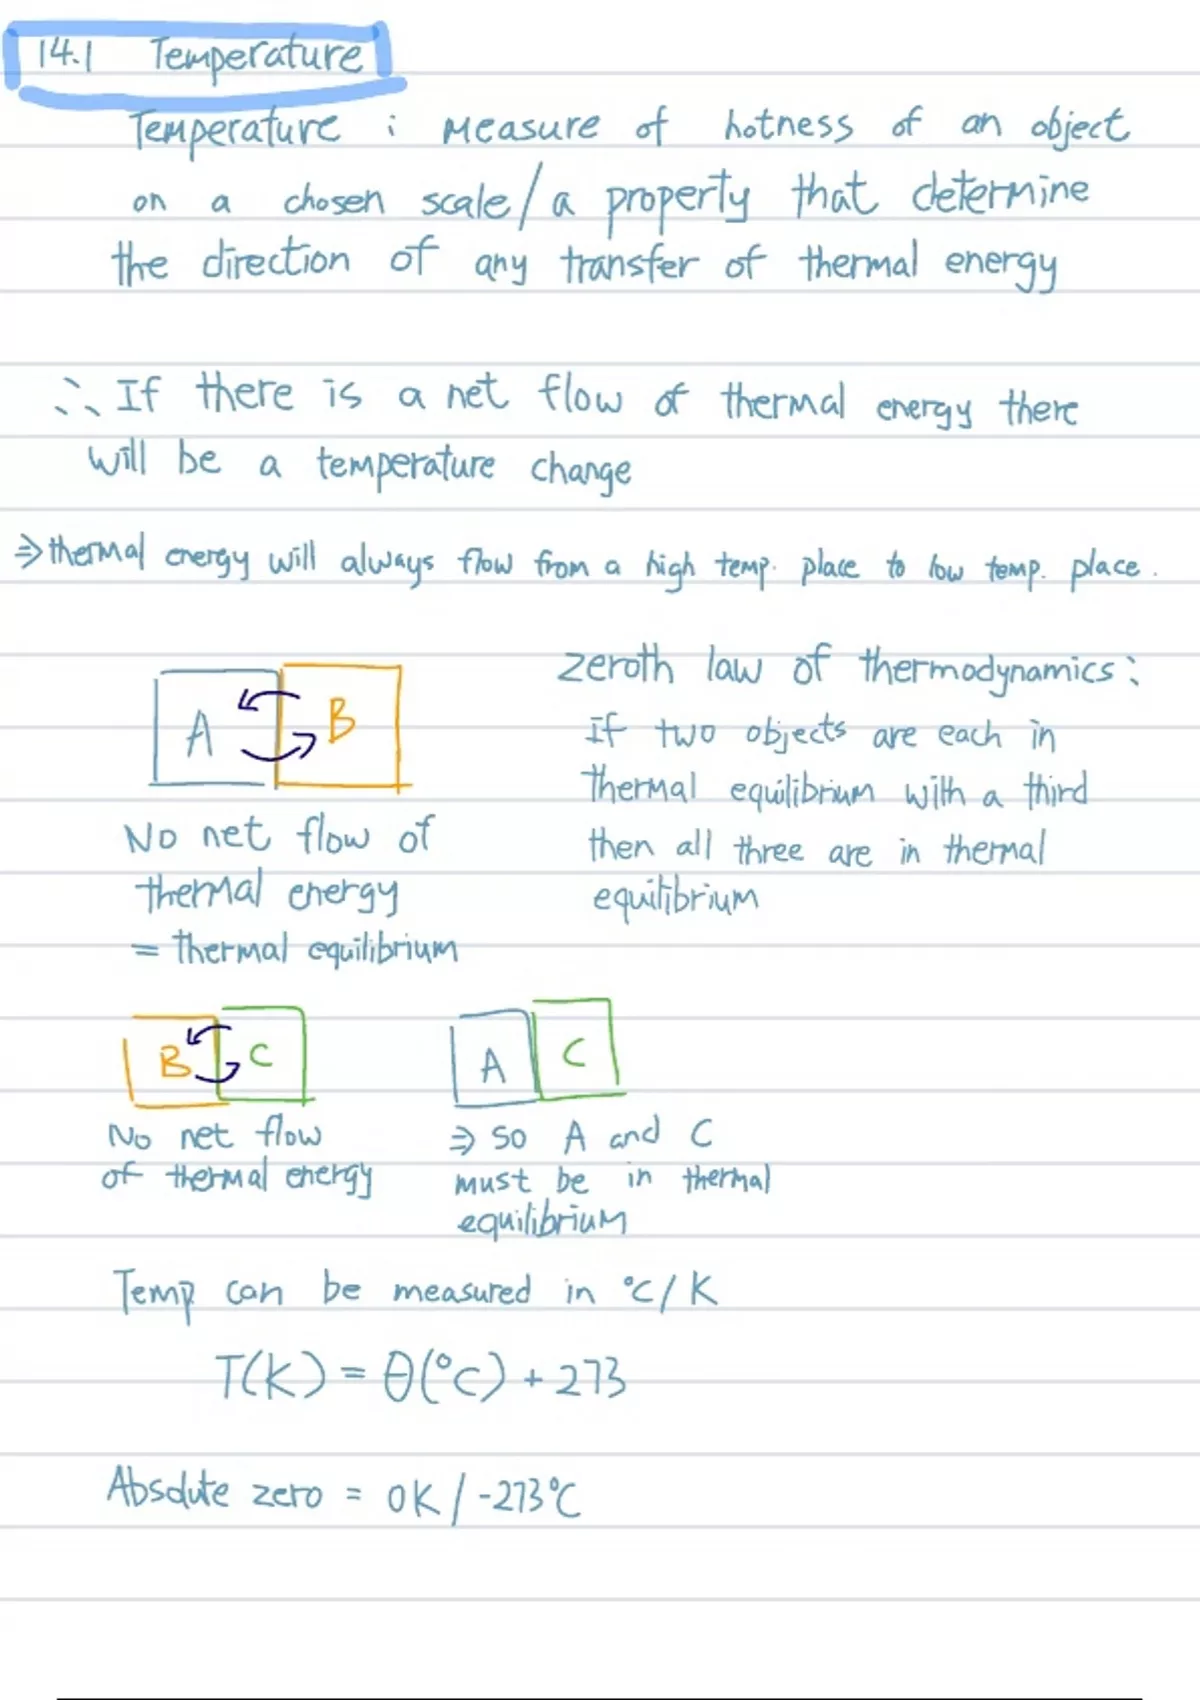 14.1 Temperature
Temperature : Measure of hotness of an object
on a chosen scale/a property that determine
the direction of any transfer of thermal energy
∴ If there is a net flow of thermal energy there
will be a temperature change
⇒ thermal energy will always flow from a high temp. place to low temp. place.
A B
No net flow of
thermal energy
= thermal equilibrium
zeroth law of thermodynamics:
If two objects are each in
thermal equilibrium with a third
then all three are in thermal
equilibrium
B C
No net flow
of thermal energy
A C
⇒ so A and C
must be in thermal
equilibrium
Temp can be measured in °C/K
T(K) = θ(°C) + 273
Absolute zero = 0K / -273°C